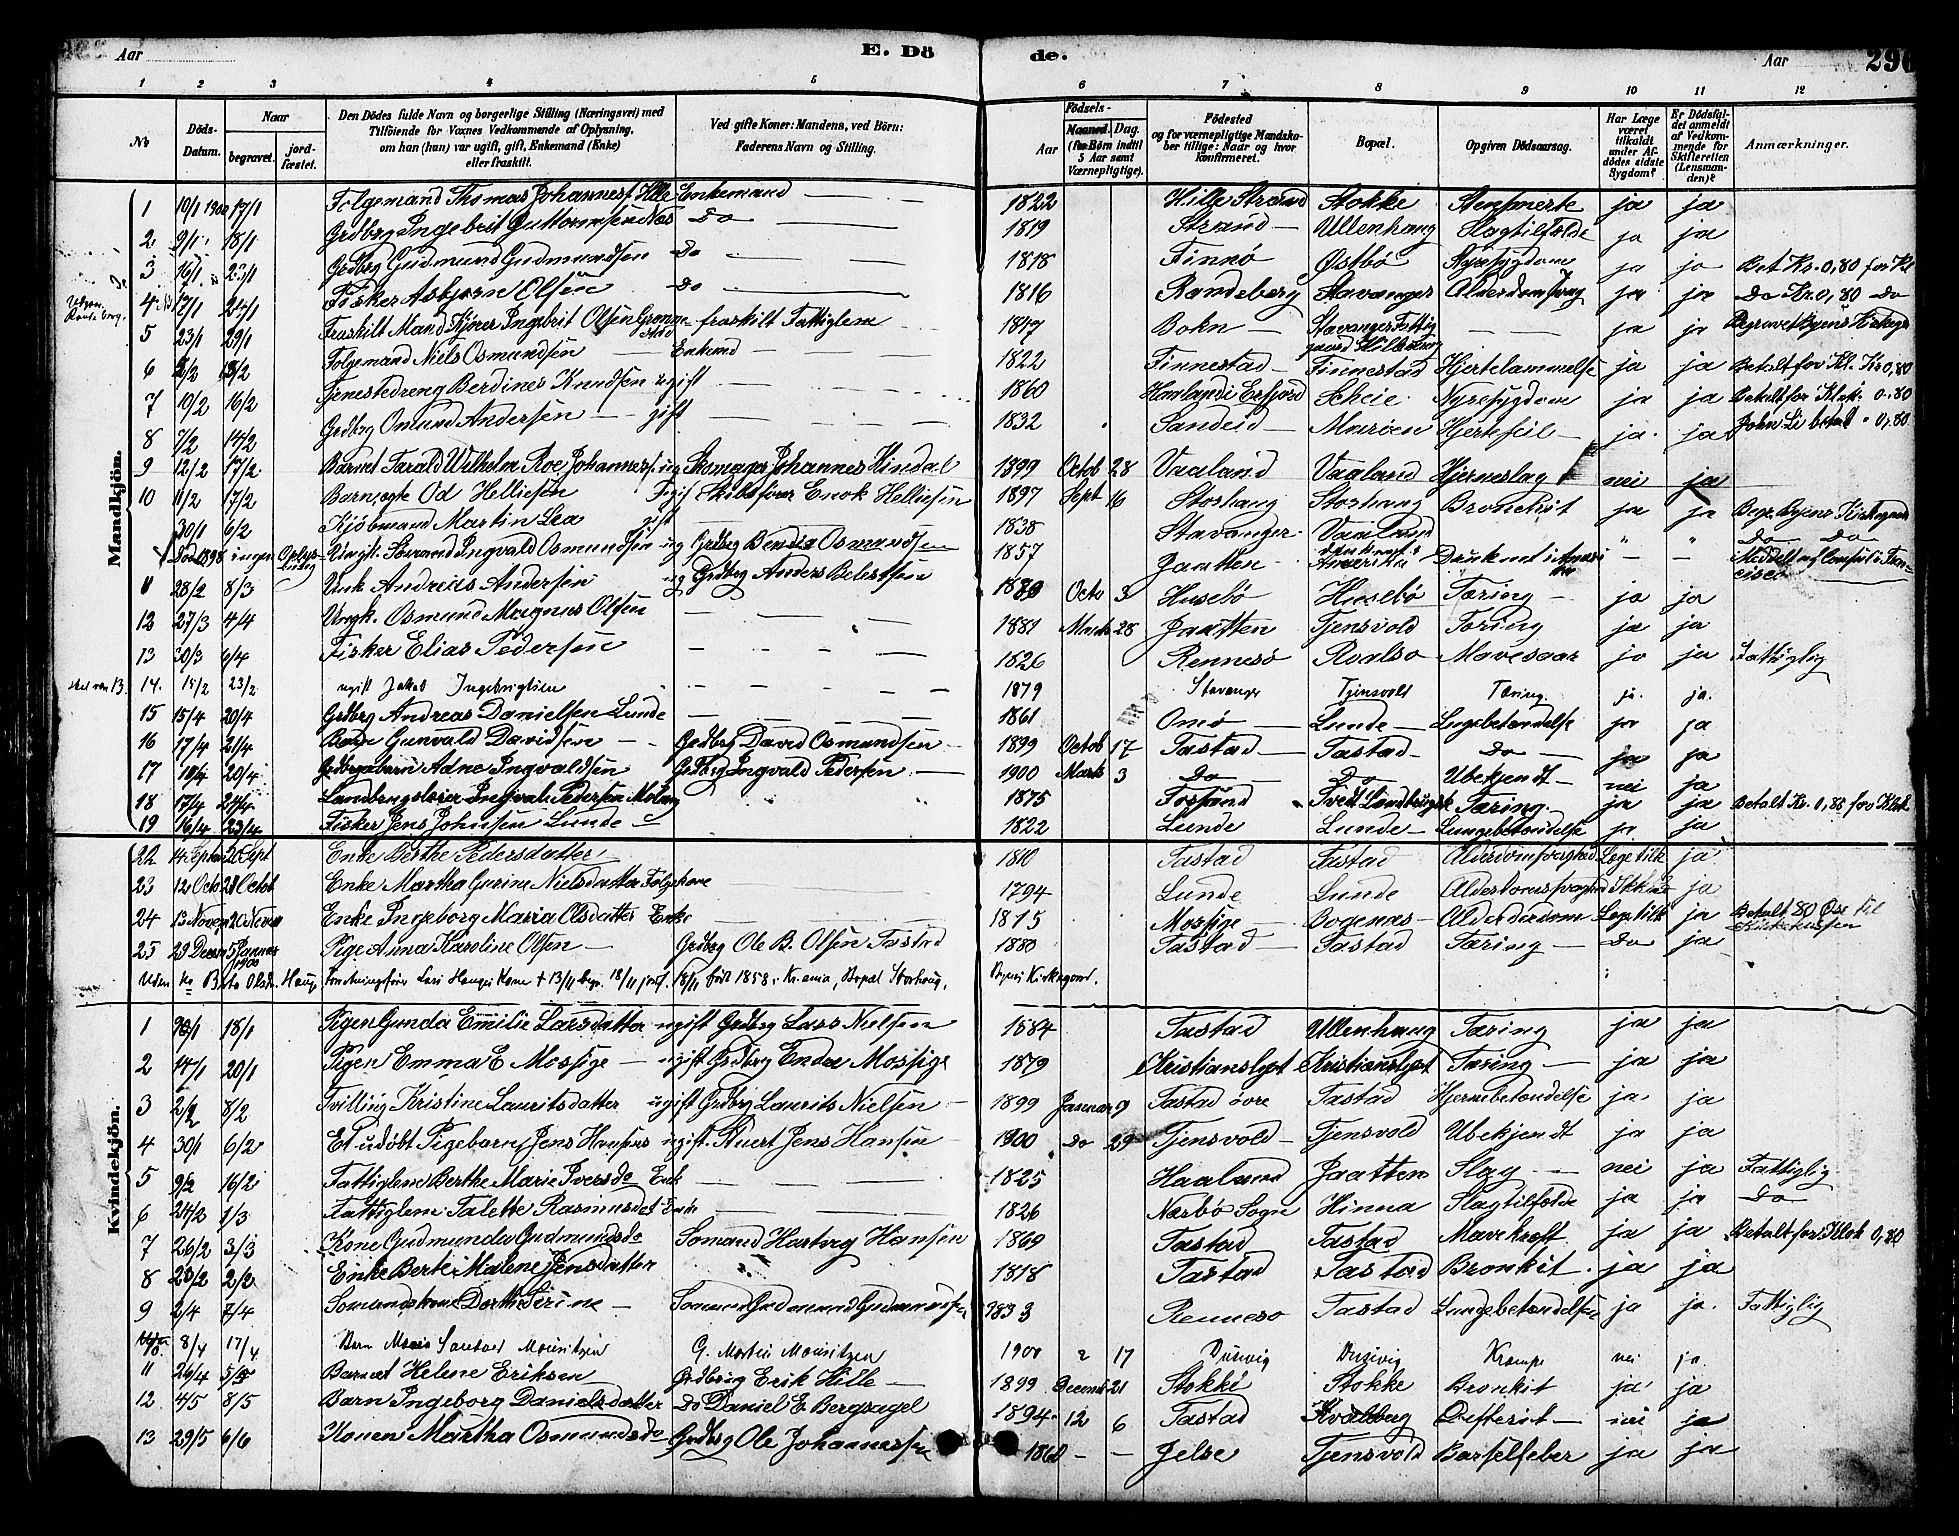 Aar E. Dö de. Aar 290
1 2 3 4 5 6 7 8 9 10 11 12
No Döds-Datum. Naar begravet. jordfæstet. Den Dödes fulde Navn og borgerlige Stilling (Næringsvei) med Tilföiende for Voxnes Vedkommende af Oplysning, om han (hun) var ugift, gift, Enkemand (Enke) eller fraskilt. Ved gifte Koner: Mandens, ved Börn: Faderens Navn og Stilling. Födsels- Aar Maaned. Dag. (for Börn indtil 5 Aar samt Værnepligtige). Födested og for værnepligtige Mandskaber tillige: Naar og hvor konfirmeret. Bopæl. Opgiven Dödsaarsag. Har Læge været tilkaldt under Afdödes sidste Sygdom? Er Dödsfaldet anmeldt af Vedkommende for Skifteretten (Lensmanden)? Anmærkninger.
Mandkjön.
1 10/1 1900 17/1 Folgemand Thomas Johannesf. Hille Enkemand 1822 Hille Strand Stokke ja ja
2 9/1 18/1 Grdbrg Ingebrit Guttormsen Næs Do 1819 Strand Ullenhaug Slagtilfælde ja ja
3 16/1 23/1 Grdbrg Gudmund Gudmundsen Do 1818 Finnö Østbø Nyresygdom ja ja Bet Kr. 0,80 for Kl
4 17/1 Fisker Asbjørn Olsen Do 1816 Randeberg Stavanger ja ja Do Kr 0,80 Do
5 23/1 29/1 Fraskilt Mand Kjører Ingebrit Olsen fraskilt Fattiglem 1847 Bokn Stavanger Fattiggaard Hillevaag ja ja
6 2/2 Folgemand Niels Osmundsen Enkemd 1822 Finnestad Finnestad Hjertelammelse ja ja Betalt for Kl. Kr 0,80
7 10/2 16/2 Tjenestedreng Berdines Knudsen ugift 1860 Erfjord Scheie Nyresygdom ja ja Betalt for Klok. 0.80
8 7/2 14/2 Grdbrg Omund Andersen gift 1832 Sandeid Hjertefeil ja ja John Li betalt 0,80
9 12/2 17/2 Barnet Tarald Wilhelm Roe Johannesf. ug Skomager Johannes Kindal 1899 Octob 28 Vaaland Vaaland Hjerneslag nei ja
10 11/2 17/2 Barn, ægte Od Helliesen Skibsfører Enok Helliesen 1897 Sept 16 Storhaug Storhaug Bronchit ja ja Begr. Byens Kirkegaard
30/1 6/2 Kjøbmand Martin Lea gift 1838 Stavanger Vaaland " " Do Do
Død 1898 ingen Ungk. Sømand Ingvald Osmundsen ug Grdbrg Bendix Osmundsen 1857 Jaatten Amerika Druknet i Meddelt af Consul i
11 28/2 8/3 Unk Andreas Andersen ug Grdbrg Anders Belestsen 1880 Octo 3 Husebø Husebø Tæring ja ja
12 27/3 4/4 Ungk. Osmund Magnus Olsen 1881 Marts 28 Jaatten Tjensvold Tæring ja ja
13 30/3 6/4 Fisker Elias Pedersen 1826 Rennesø Mavesaar ja ja Fattiglig
14. 15/2 23/2 ugift Jakob Ingebrigtsen 1879 Stavanger Tjensvold Tæring. ja. ja.
15 15/4 20/4 Grdbrg Andreas Danielsen Lunde 1861 Omø Lunde Lungebetændelse ja ja
16 17/4 21/4 Gunvald Davidsen Grdbrg David Osmundsen 1899 Octob 17 Tastad Tastad Do ja ja
17 20/4 Adne Ingvaldsen Grdbrg Ingvald Pedersen 1900 Marts 3 Do Ubekjendt nei ja
18 17/4 24/4 Pedersen Molaug 1875 Fossand Tvedt Tæring ja ja Betalt Kr. 0,80 for Klok
19 16/4 23/4 Fisker Jens Johnsen Lunde 1822 Lunde Lunde Lungebetændelse ja ja
Kvindekjön.
22 14 Septem 20 Sept Enke Berthe Pedersdatter 1810 Tastad Tastad Alderdomsvaghed Læge tilk ja
23 12 Octo 21 Octob Enke Martha Gurine Nielsdatter Folgekone 1794 Lunde Lunde ja
24 13 Novem 20 Novem Enke Ingeborg Maria Olsdatter Enke 1815 Mossige Læge tilk ja Betalt 80 Øre til Kirkekassen
25 29 Decem 5 Januar 1900 Pige Anna Karoline Olsen Grdbrg Ole B. Olsen Tastad 1880 Tastad Tastad Tæring Do ja
Uden Olsdr. Haug, Lars Haugs Kone + 13/11 begr. 18/11 jordf. 18/11 født 1858 i Kr.ania, Bopæl Storhaug, Byens Kirkegaard.
1 18/1 Pigen Gunda Emilie Larsdatter ugift Grdbrg Lars Nielsen 1884 Tastad Ullenhaug Tæring ja ja
2 14/1 20/1 Pigen Emma E Mossige ugift Grdbrg Endre Mossige 1879 Kristianslyst Kristianslyst Tæring ja ja
3 2/2 8/2 Tvilling Kristine Lauritsdatter ugift Grdbrg Laurits Nielsen 1899 Januar 9 Tastad övre Tastad Hjernebetændelse ja ja
4 30/1 6/2 Et udøbt Pigebarn, Jens Hansens ugift. Jens Hansen 1900 Do 29 Tjensvold Tjensvold Ubekjendt ja ja
5 9/2 16/2 Fattiglem Berthe Marie Iversda Enke 1825 Haaland Jaatten Slag nei ja Fattiglig
6 24/2 1/3 Fattiglem Talette Rasmusdat Enke 1826 Nærbø Sogn Hinna Slagtilfælde ja ja Do
7 26/2 3/3 Kone Gudmunda Gudmundsda Sømand Hartvig Hansen 1869 Tastad Tastad Mavekræft ja ja Betalt for Klok 0,80
8 23/2 2/2 Enke Berte Malene Jensdatter 1818 Tastad Tastad Bronkit ja ja
9 2/4 7/4 Sømandskone Dorthe Serine Sømand Gudmund Gudmundsen 1833 Rennesø Tastad Lungebetændelse ja ja Fattiglig
8/4 17/4 Barn Mouritzen G. Martin Mouritzen 1900 2 17 Dusevig Dusevig Krampe nei ja
11 26/4 5/5 Barnet Helene Eriksen Grdbrug Erik Hille 1899 Decemb 21 Stokke Stokke Bronkit ja ja
12 4/5 8/5 Barn Ingeborg Danielsdatter Do Daniel E Bergsagel 1894 12 6 Tastad Kvalberg Difterit nei ja
13 29/5 6/6 Konen Martha Osmundsda Grdbrg Ole Johannessen 1860 Jelse Tjensvold Barselfeber ja ja